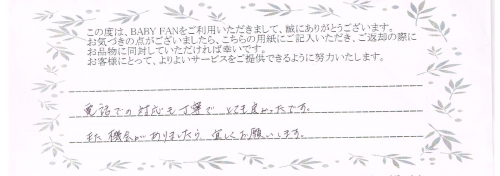 この度は、BABY FANをご利用いただきまして、誠にありがとうございます。
お気づきの点がございましたら、こちらの用紙にご記入いただき、ご返却の際に
お品物に同封していただければ幸いです。
お客様にとって、よりよいサービスをご提供できるように努力いたします。
電話での対応も丁寧で とても良かったです。
また機会がありましたら 宜しくお願いします。